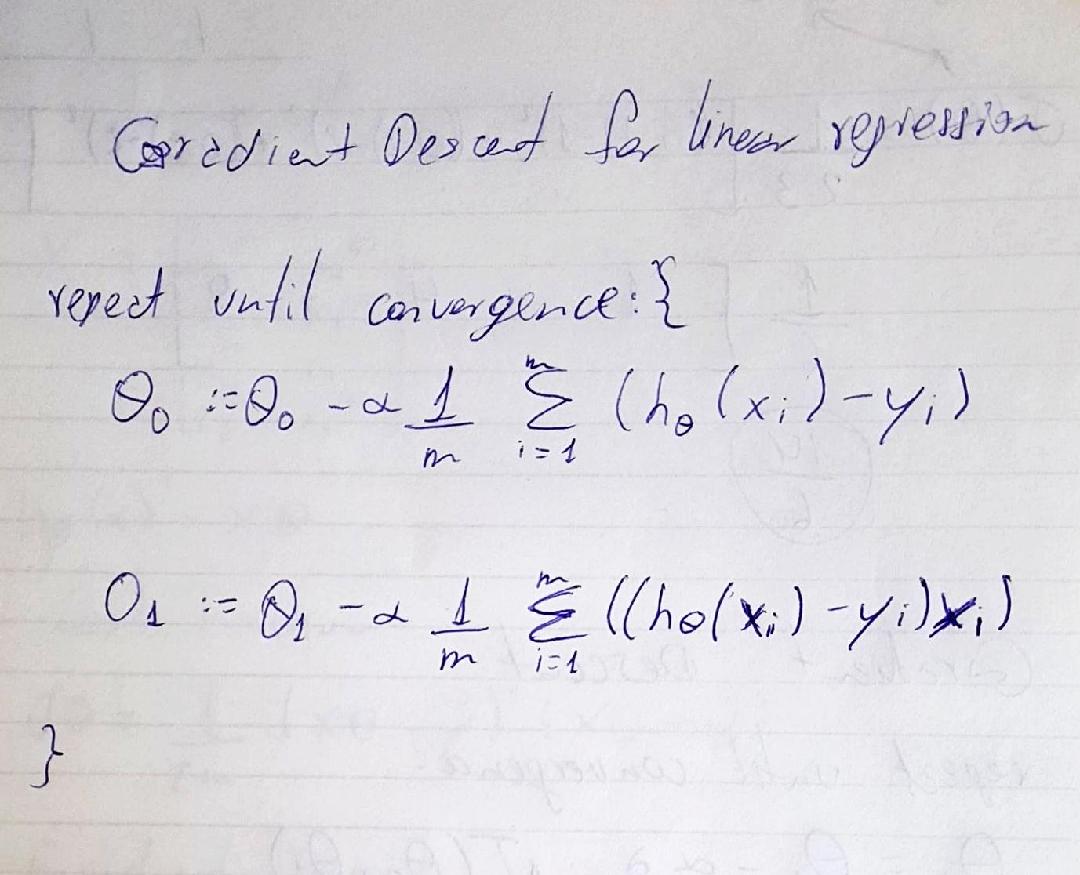 Gradient Descent for linear regression
repeat until convergence: {
θ₀ := θ₀ - α 1/m Σ_{i=1}^{m} (h_θ(x_i) - y_i)
θ₁ := θ₁ - α 1/m Σ_{i=1}^{m} ((h_θ(x_i) - y_i)x_i)
}